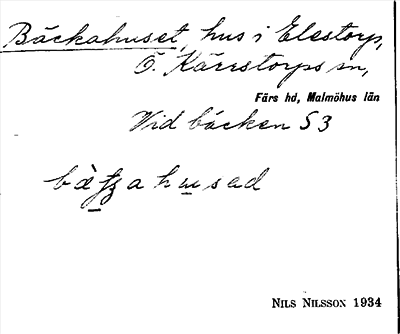 Bäckahuset, hus i Elestorp,
Ö. Kärrstorps sn,
Färs hd, Malmöhus län
Vid bäcken S3
NILS NILSSON 1934